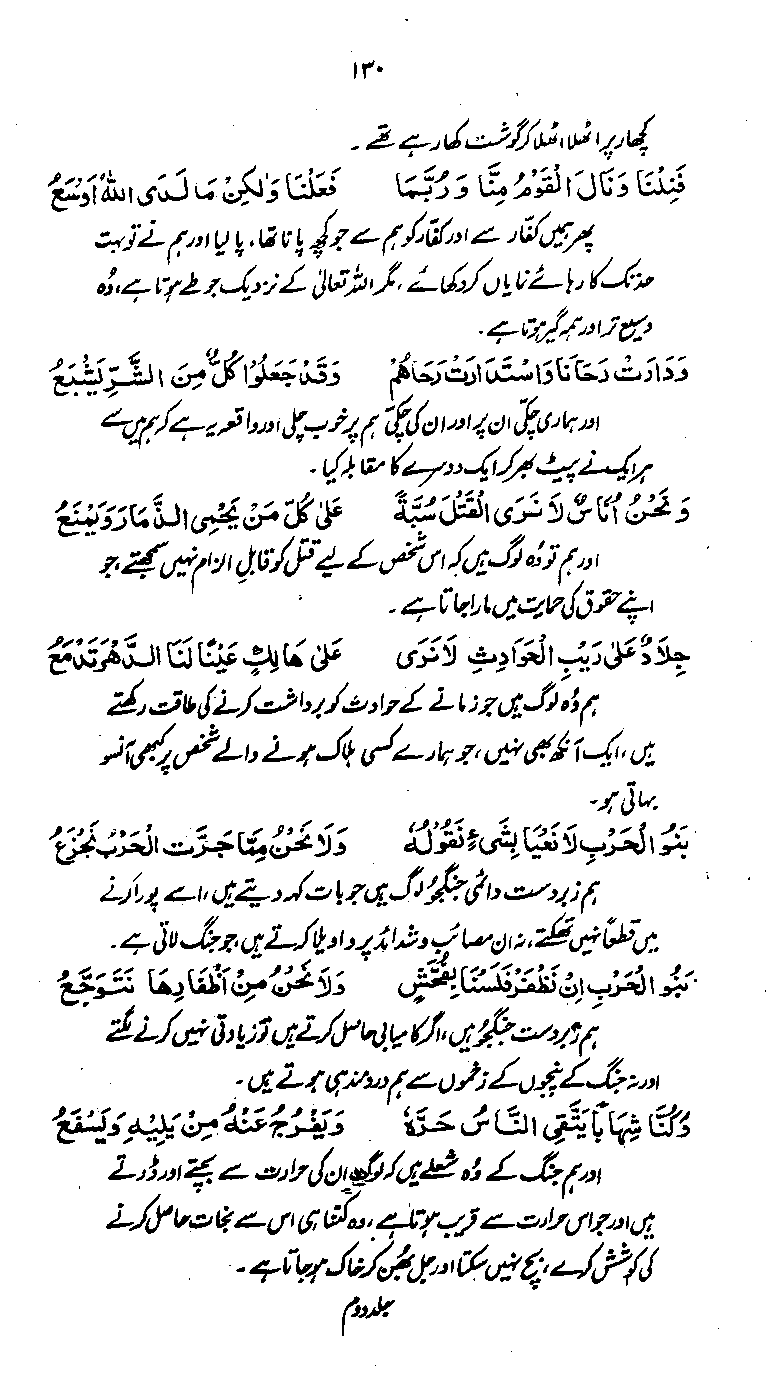 ۱۳۰
کچھار پر اٹھلا اٹھلا کر گوشت کھا رہے تھے۔
فَنِلْنَا وَنَالَ الْقَوْمُ مِنَّا وَرُبَّمَا فَعَلْنَا وَلٰكِنْ مَا لَدَى اللهِ اَوْسَعُ
پھر ہمیں کفار سے اور کفار کو ہم سے جو کچھ پانا تھا، پا لیا اور ہم نے تو بہت
حد تک کارہائے نمایاں کر دکھائے، مگر اللہ تعالیٰ کے نزدیک جو طے ہوتا ہے، وُہ
وسیع تر اور ہمہ گیر ہوتا ہے۔
وَدَارَتْ رَحَانَا وَاسْتَدَارَتْ رَحَاهُمْ وَقَدْ جَعَلُوْا كُلٌّ مِنَ الشَّرِّ يَشْبَعُ
اور ہماری چکّی ان پر اور ان کی چکّی ہم پر خوب چلی اور واقعہ یہ ہے کہ ہم میں سے
ہر ایک نے پیٹ بھر کر ایک دوسرے کا مقابلہ کیا۔
وَنَحْنُ اُنَاسٌ لَا نَرَى الْقَتْلَ سُبَّةً عَلٰى كُلِّ مَنْ يَحْمِى الذِّمَارَ وَيَمْنَعُ
اور ہم تو وُہ لوگ ہیں کہ اس شخص کے لیے قتل کو قابلِ الزام نہیں سمجھتے، جو
اپنے حقوق کی حمایت میں مارا جاتا ہے۔
جِلَادٌ عَلٰى رَيْبِ الْحَوَادِثِ لَا نَرَى عَلٰى هَالِكٍ عَيْنًا لَنَا الدَّهْرَ تَدْمَعُ
ہم وُہ لوگ ہیں جو زمانے کے حوادث کو برداشت کرنے کی طاقت رکھتے
ہیں، ایک آنکھ بھی نہیں، جو ہمارے کسی ہلاک ہونے والے شخص پر کبھی آنسو
بہاتی ہو۔
بَنُو الْحَرْبِ لَا نَعْيَا بِشَىْءٍ نَقُوْلُهٗ وَلَا نَحْنُ مِمَّا جَرَّتِ الْحَرْبُ نَجْزَعُ
ہم زبردست دائمی جنگجو لوگ ہیں جو بات کہہ دیتے ہیں، اسے پورا کرنے
میں قطعاً نہیں تھکتے، نہ ان مصائب و شدائد پر واویلا کرتے ہیں، جو جنگ لاتی ہے۔
بَنُو الْحَرْبِ اِنْ نَظْفَرْ فَلَسْنَا بِفُحَّشٍ وَلَا نَحْنُ مِنْ اَظْفَارِهَا نَتَوَجَّعُ
ہم زبردست جنگجو ہیں، اگر کامیابی حاصل کرتے ہیں تو زیادتی نہیں کرنے لگتے
اور نہ جنگ کے پنجوں کے زخموں سے ہم دردمند ہی ہوتے ہیں۔
وَكُنَّا شِهَابًا يَتَّقِى النَّاسُ حَرَّهٗ وَيَفْرُجُ عَنْهُ مَنْ يَلِيْهِ وَيَسْفَعُ
اور ہم جنگ کے وُہ شعلے ہیں کہ لوگ ان کی حرارت سے بچتے اور ڈرتے
ہیں اور جو اس حرارت سے قریب ہوتا ہے، وہ کتنا ہی اس سے نجات حاصل کرنے
کی کوشش کرے، بچ نہیں سکتا اور جل بھُن کر خاک ہو جاتا ہے۔
جلد دوم